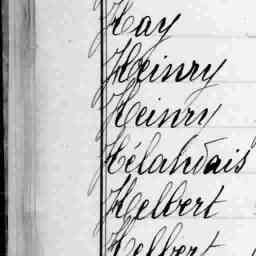 Hay
Heinry
Heinry
Hélandais
Helbert
Helbert